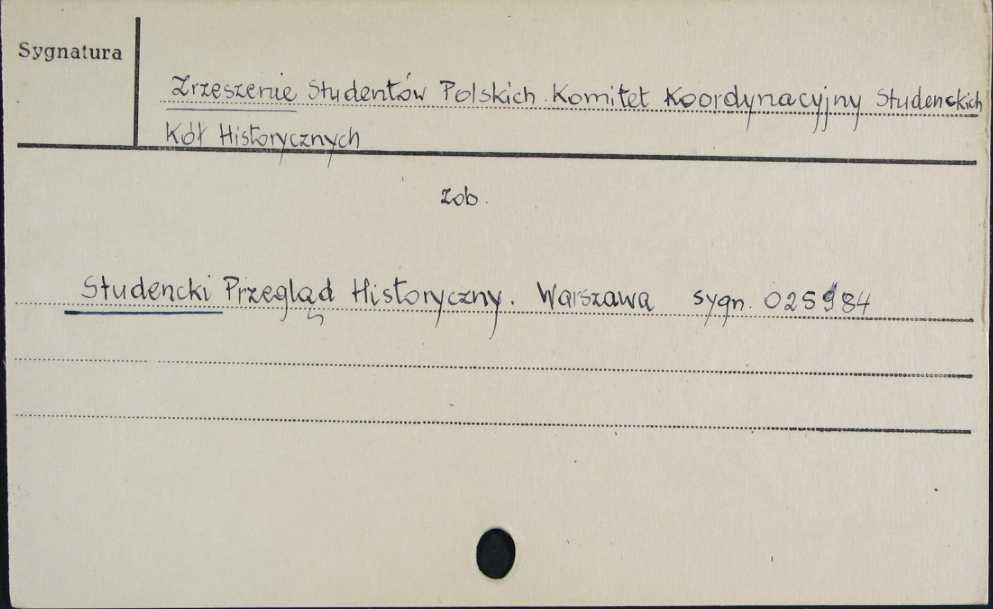 Sygnatura
Zrzeszenie Studentów Polskich. Komitet Koordynacyjny Studenckich
Kół Historycznych
zob.
Studencki Przegląd Historyczny. Warszawa sygn. 025984